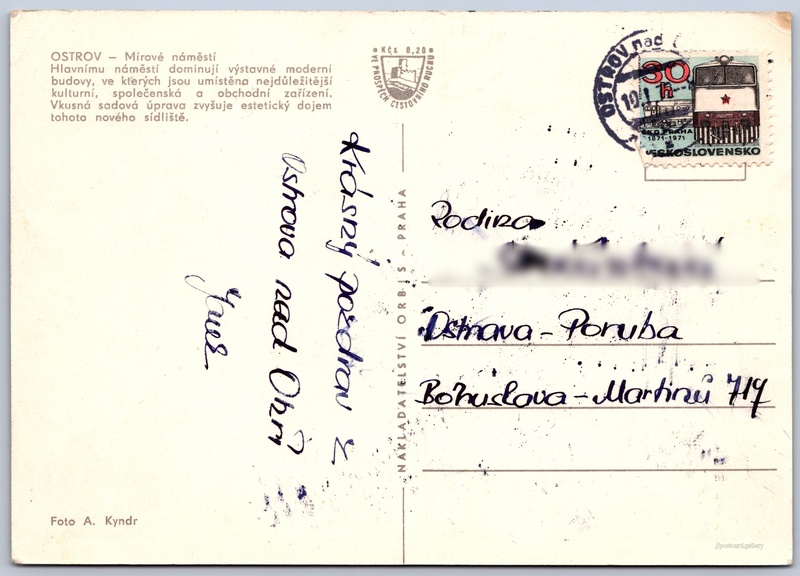 OSTROV — Mírové náměstí
Hlavnímu náměstí dominují výstavné moderní
budovy, ve kterých jsou umístěna nejdůležitější
kulturní, společenská a obchodní zařízení.
Vkusná sadová úprava zvyšuje estetický dojem
tohoto nového sídliště.
Kčs 0,20
VE PROSPĚCH CESTOVNÍHO RUCHU
OSTROV nad
30
h
ČKD PRAHA
1871-1971
ČESKOSLOVENSKO
Krásný pozdrav z
Ostrova nad Ohří
NAKLADATELSTVÍ ORBIS - PRAHA
Rodina
Ostrava - Poruba
Bohuslava - Martinů 719
Foto A. Kyndr
//postcard.gallery